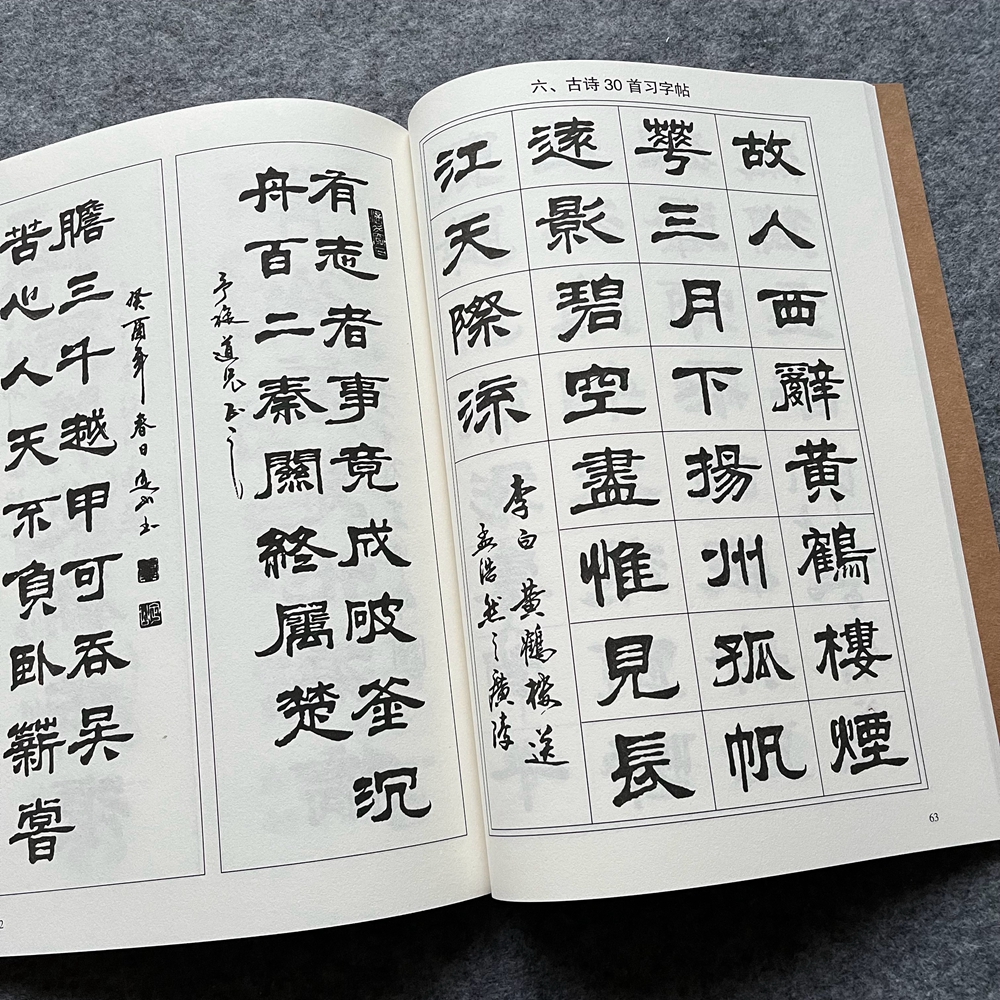 有志者事竟成破釜沉
舟百二秦關終屬楚
道兄正之
苦心人天不負卧薪嘗
膽三千越甲可吞吴
癸酉年春日
六、古诗30首习字帖
故人西辭黄鶴樓煙
華三月下揚州孤帆
遠影碧空盡惟見長
江天際流
李白黄鶴樓送
孟浩然之廣陵
63